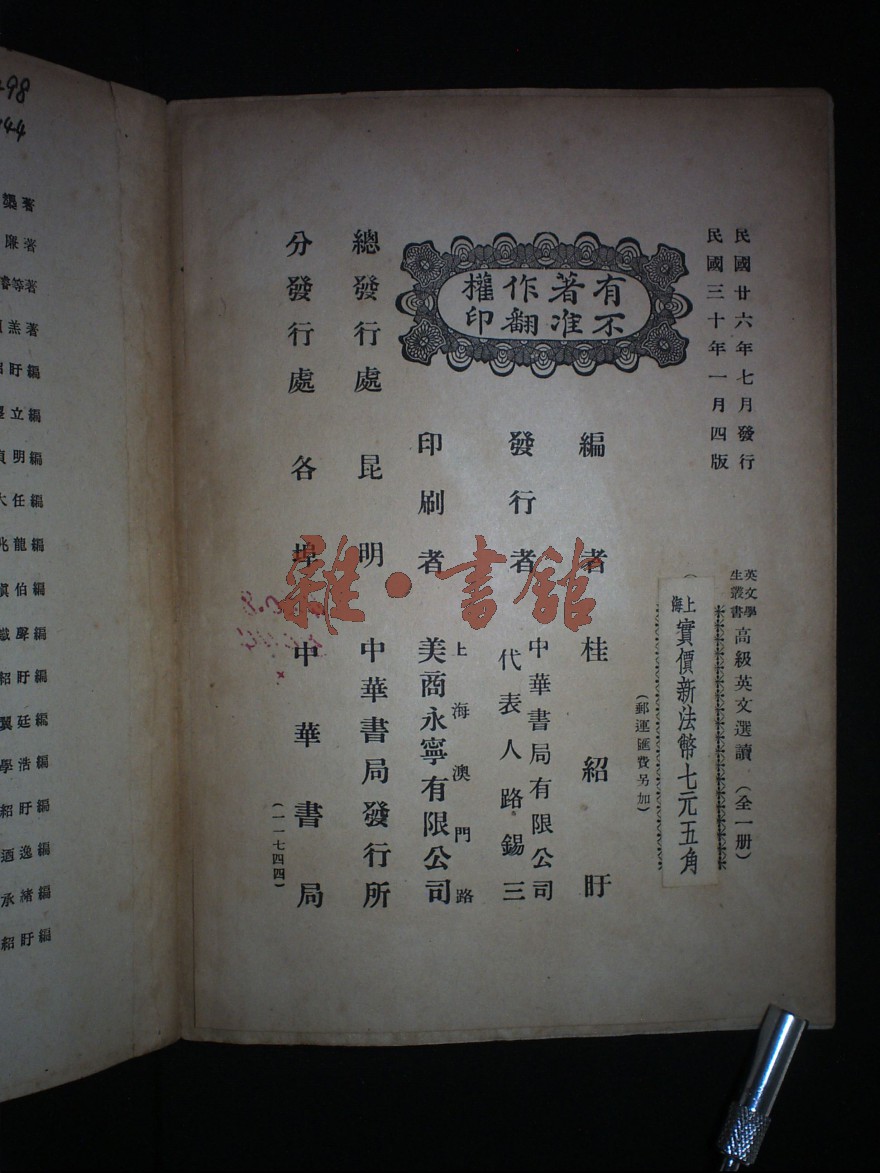 民國廿六年七月發行
民國三十年一月四版
英文學生叢書 高級英文選讀（全一册）
上海實價新法幣七元五角
（郵運匯費另加）
有著作權
不准翻印
編者 桂紹盱
發行者 中華書局有限公司
代表人路錫三
印刷者 上海澳門路
美商永寧有限公司
總發行處 昆明 中華書局發行所
分發行處 各埠 中華書局
（一一七四四）
雜·書館
98
44
著
廉著
等著
羔著
盱編
立編
明編
大任編
兆龍編
伯編
聲編
紹盱編
翼廷編
學浩編
紹盱編
逸編
承緒編
紹盱編